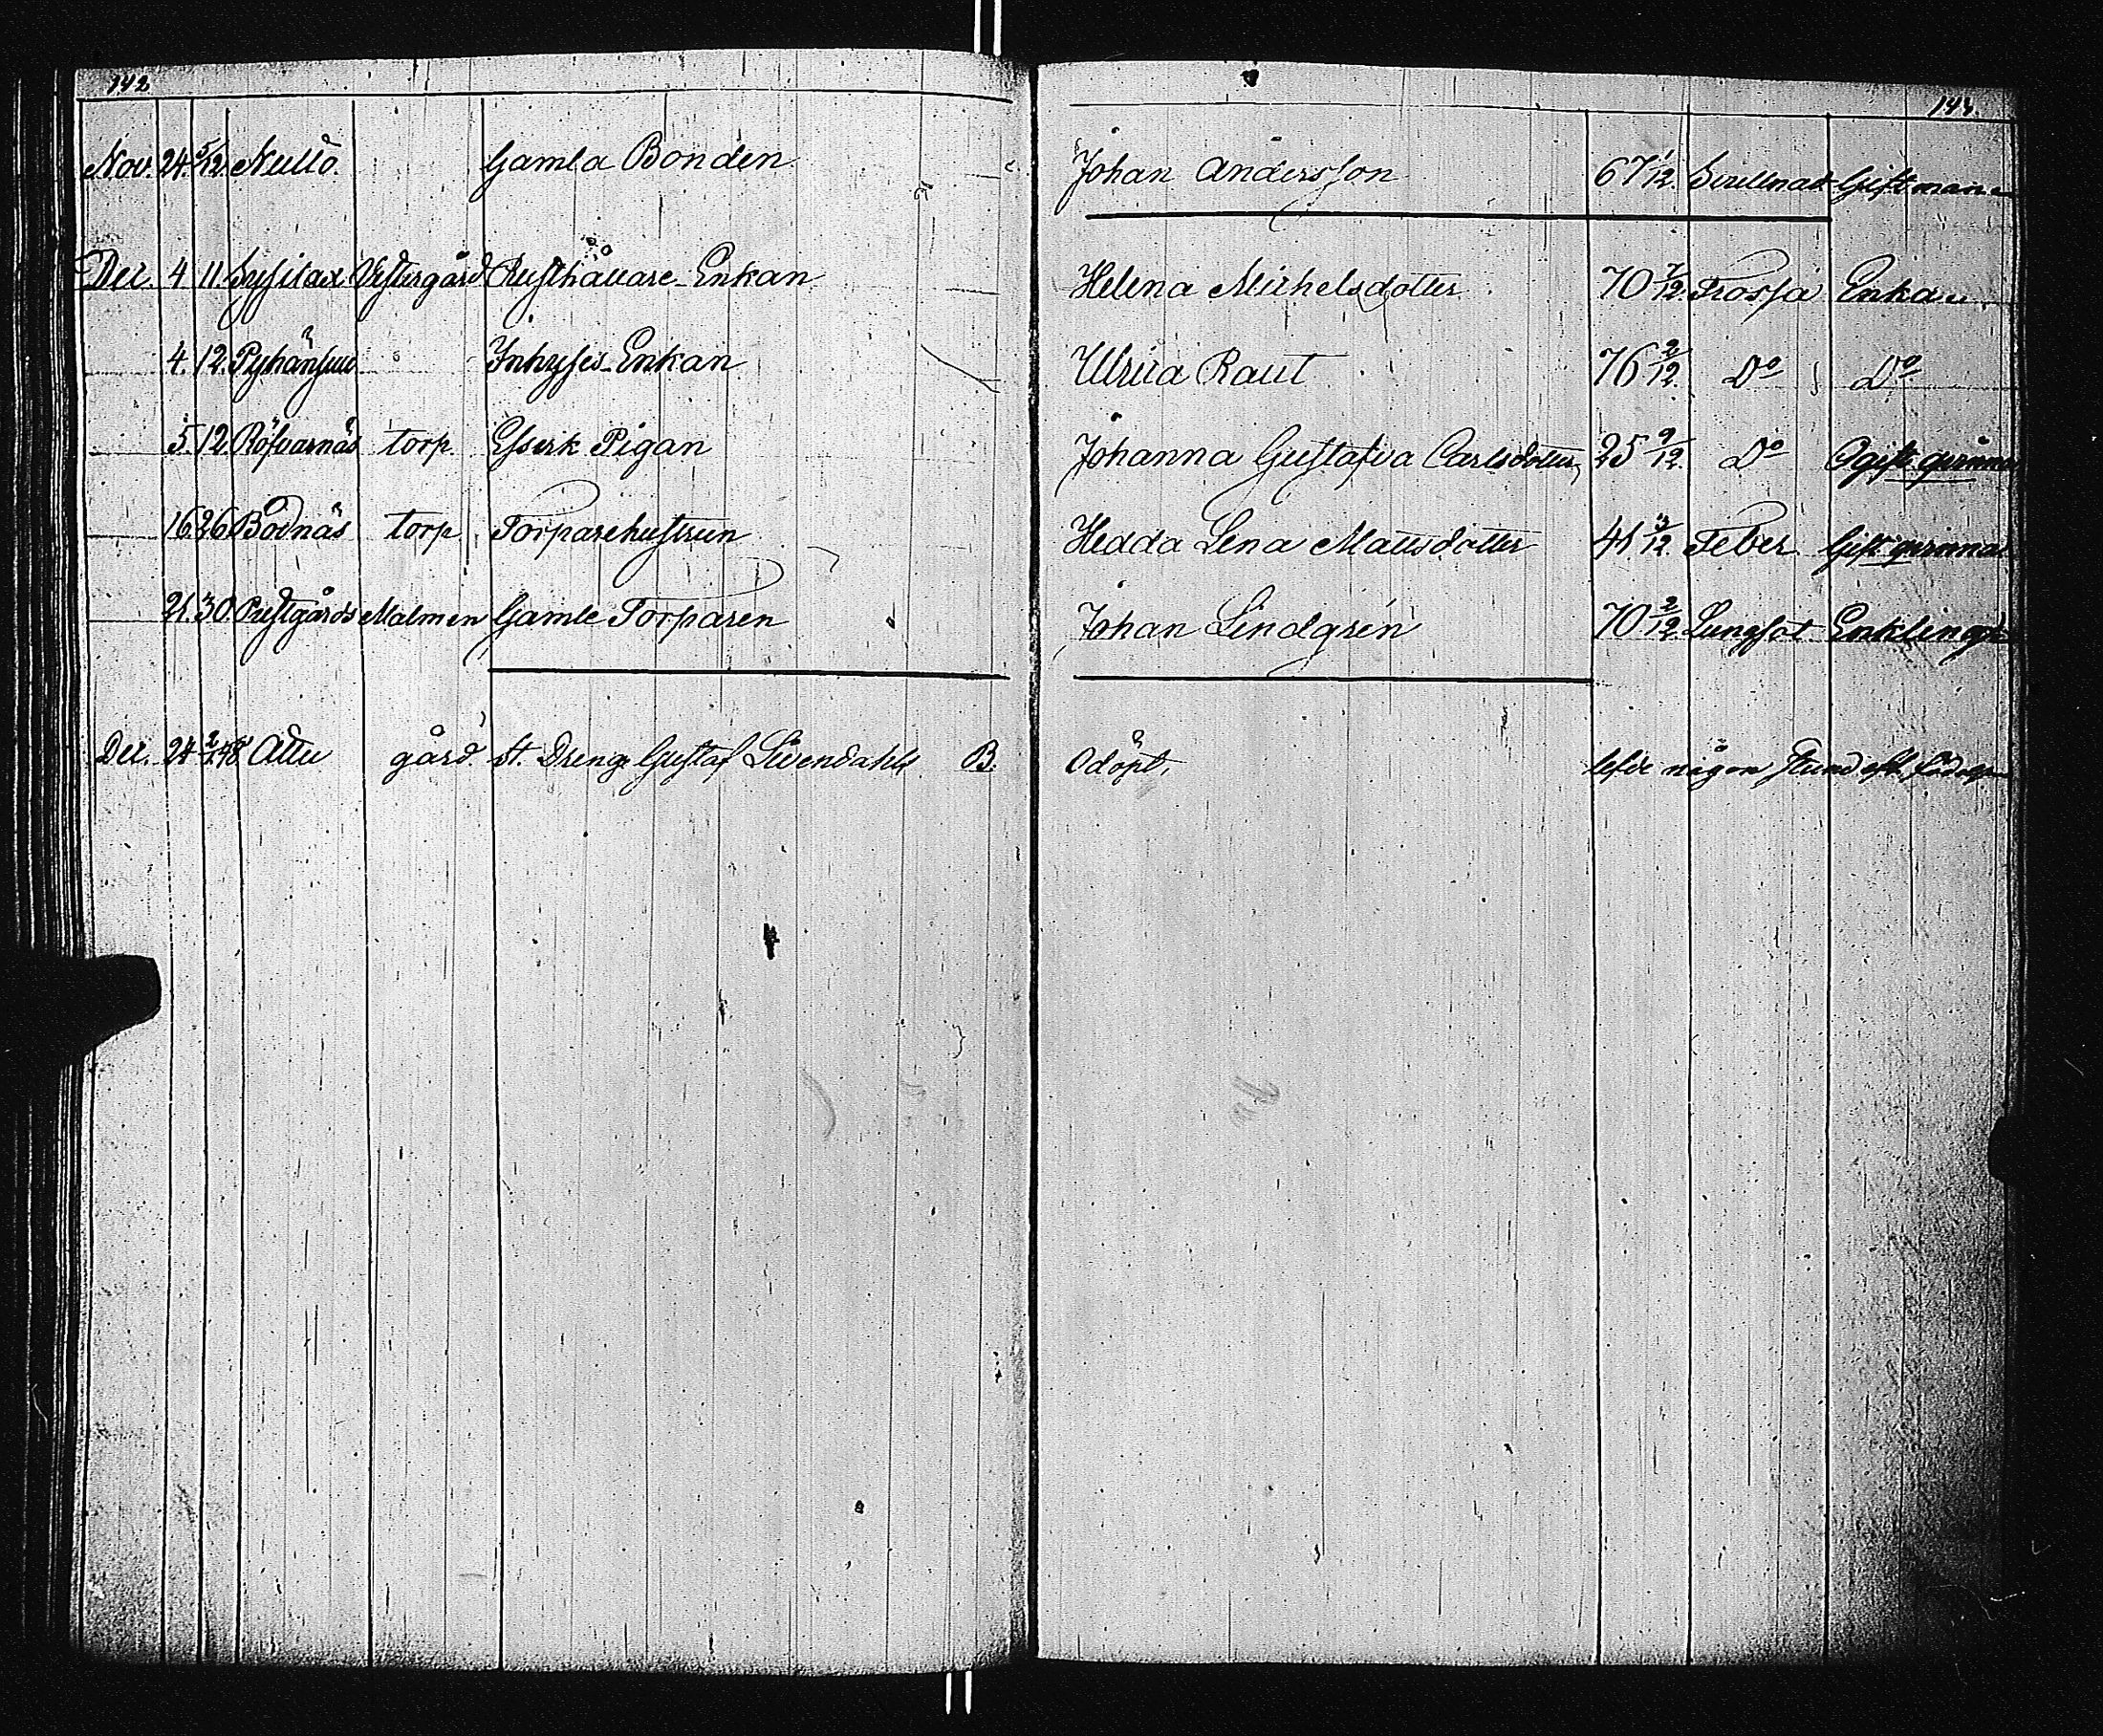 142
143.
Nov. 24. 5/12. Nullö. Gamla Bonden Johan Andersson 67 1/12. Svullnad Gift man
Dec. 4 11. Sysilax Vestergård Rusthållare Enkan Helena Michelsdotter 70 7/12. Frossa Enka
4. 12. Pyhänsuu Inhyses Enkan Ulrica Raut 76 2/12. Do Do
5. 12. Röfvarnäs torp. Eserk Pigan Johanna Gustafva Carlsdotter, 25 9/12. Do Ogift qvinna
16. 26 Bodnäs torp Torparehustrun Hedda Lena Mattsdotter 41 3/12. Feber. Gift qvinna
21. 30. Prestgårds Malmen Gamle Torparen Johan Lindgrén 70 2/12. Lungsot Enkling
Dec. 24 2/1.48 Attu gård st. Dreng Gustaf Livendahls B. Odöpt, lefde någon stund eft. födseln